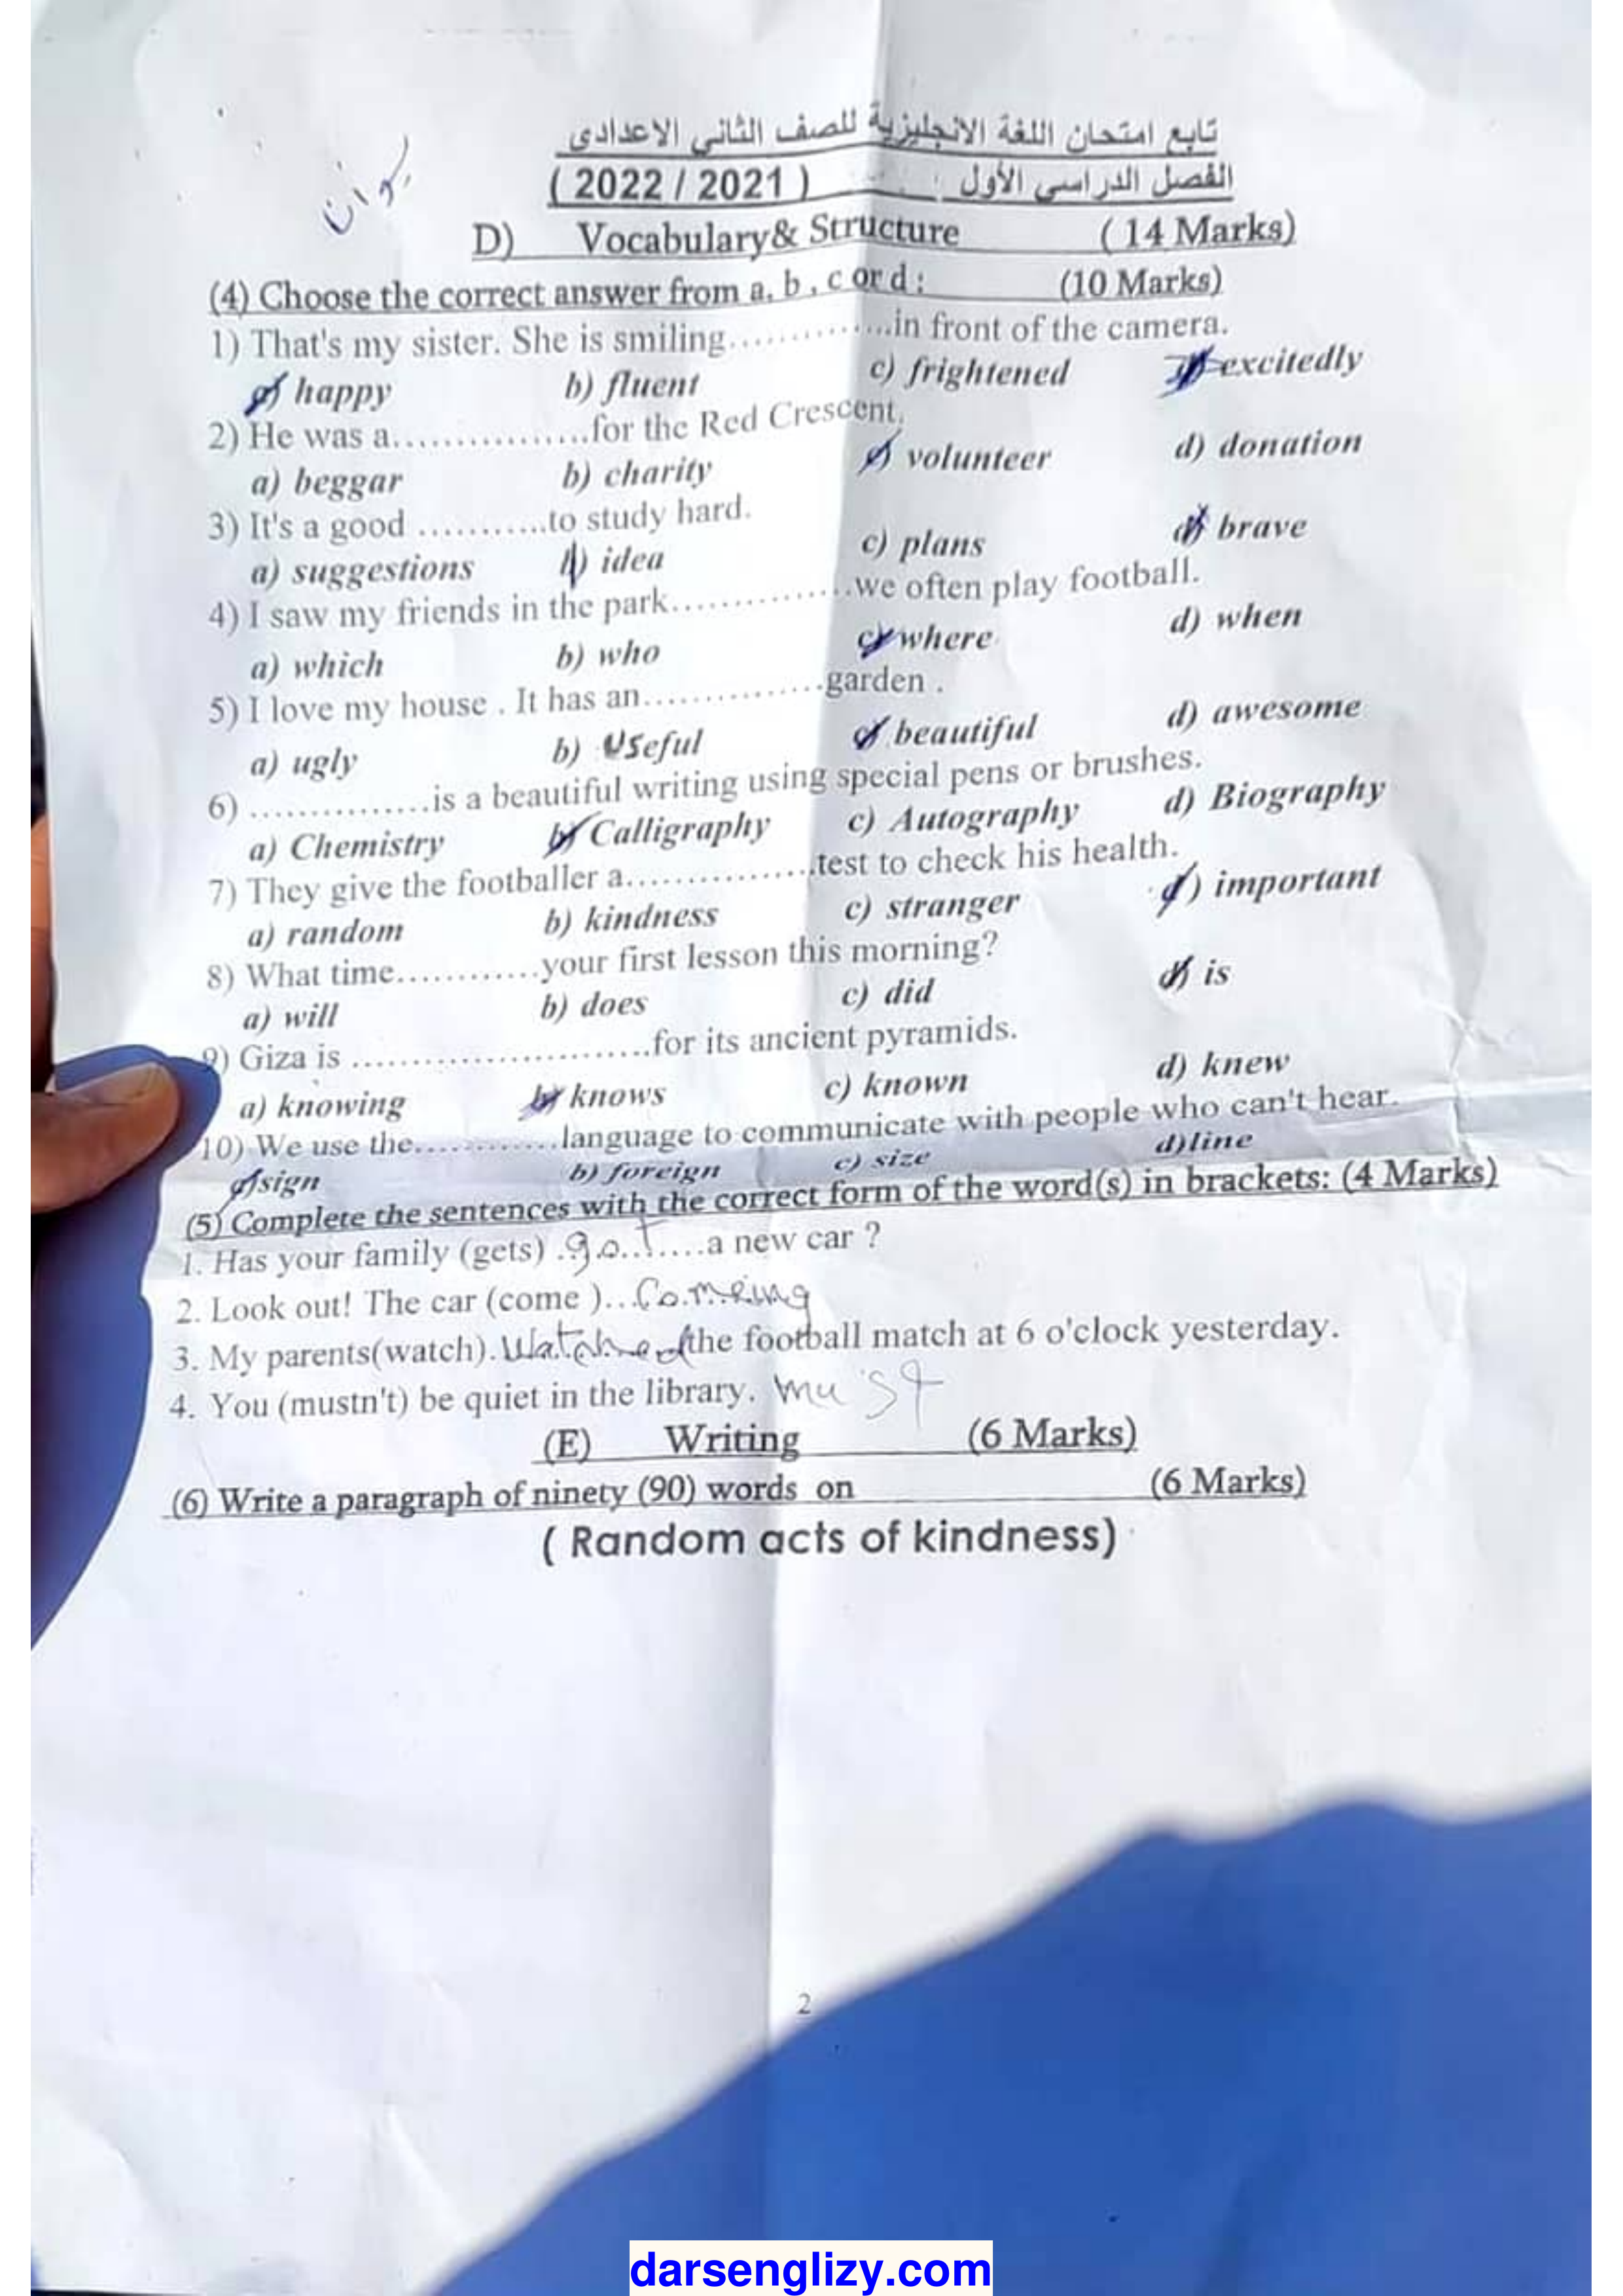 تابع امتحان اللغة الانجليزية للصف الثاني الاعدادى
الفصل الدراسى الأول ( 2022 / 2021 )
D) Vocabulary& Structure ( 14 Marks)
(4) Choose the correct answer from a, b , c or d : (10 Marks)
1) That's my sister. She is smiling..............in front of the camera.
a) happy b) fluent c) frightened d) excitedly
2) He was a.................for the Red Crescent.
a) beggar b) charity c) volunteer d) donation
3) It's a good ...........to study hard.
a) suggestions b) idea c) plans d) brave
4) I saw my friends in the park...............we often play football.
a) which b) who c) where d) when
5) I love my house . It has an...............garden .
a) ugly b) Useful c) beautiful d) awesome
6) ...............is a beautiful writing using special pens or brushes.
a) Chemistry b) Calligraphy c) Autography d) Biography
7) They give the footballer a................test to check his health.
a) random b) kindness c) stranger d) important
8) What time............your first lesson this morning?
a) will b) does c) did d) is
9) Giza is .........................for its ancient pyramids.
a) knowing b) knows c) known d) knew
10) We use the............language to communicate with people who can't hear.
a) sign b) foreign c) size d)line
(5) Complete the sentences with the correct form of the word(s) in brackets: (4 Marks)
1. Has your family (gets) got a new car ?
2. Look out! The car (come )...Comeing
3. My parents(watch). Watched the football match at 6 o'clock yesterday.
4. You (mustn't) be quiet in the library. must
(E) Writing (6 Marks)
(6) Write a paragraph of ninety (90) words on (6 Marks)
( Random acts of kindness)
2
darsenglizy.com